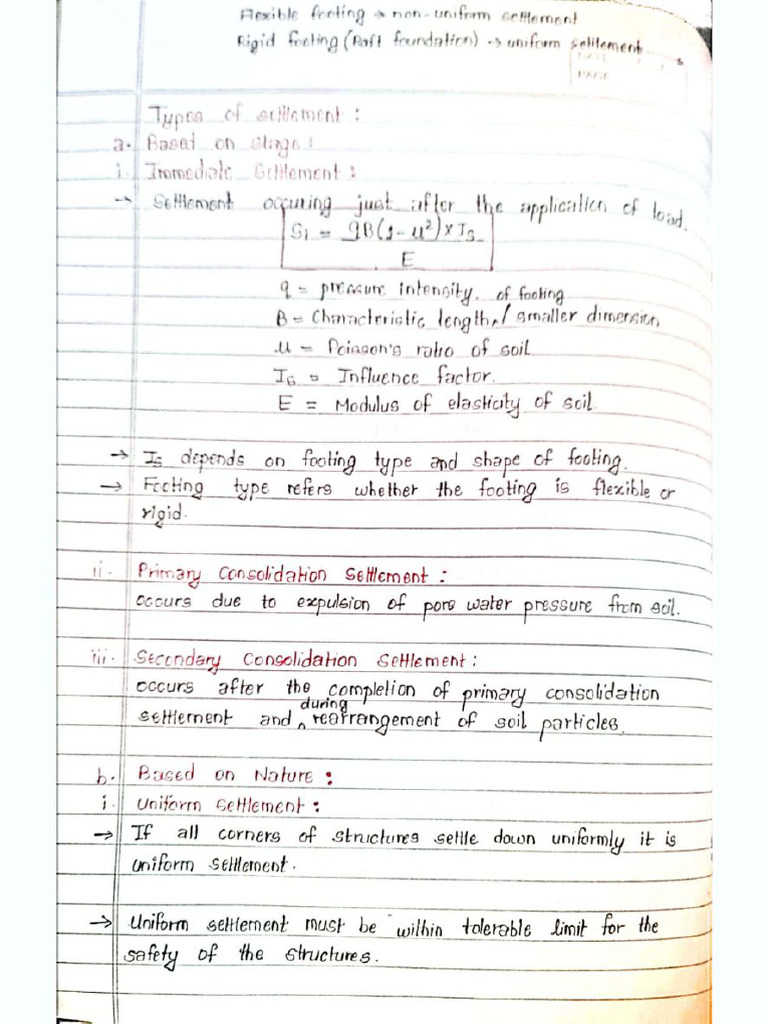 Flexible footing → non-uniform settlement
Rigid footing (Raft foundation) → uniform settlement
DATE
PAGE
Types of settlement :
a. Based on Stage :
i. Immediate Settlement :
→ Settlement occuring just after the application of load.
Si = qB(1-μ²) x Is
E
q = pressure intensity. of footing
B = Characteristic length / smaller dimension
μ = Poisson's ratio of soil
Is = Influence factor.
E = Modulus of elasticity of soil.
→ Is depends on footing type and shape of footing.
→ Footing type refers whether the footing is flexible or
rigid.
ii. Primary Consolidation Settlement :
occurs due to expulsion of pore water pressure from soil.
iii. Secondary Consolidation Settlement :
occurs after the completion of primary consolidation
during
settlement and ^ rearrangement of soil particles.
b. Based on Nature :
i. Uniform Settlement :
→ If all corners of structures settle down uniformly it is
uniform settlement.
→ Uniform settlement must be within tolerable limit for the
safety of the structures.